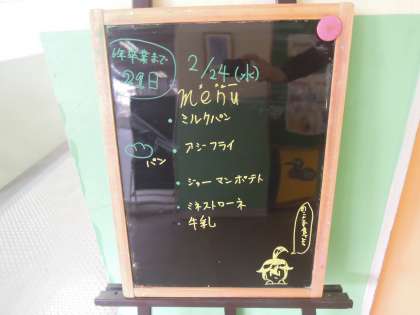 6年卒業まで
29日
2/24(水)
menu
・ミルクパン
・アジフライ
パン
・ジャーマンポテト
・ミネストローネ
・牛乳